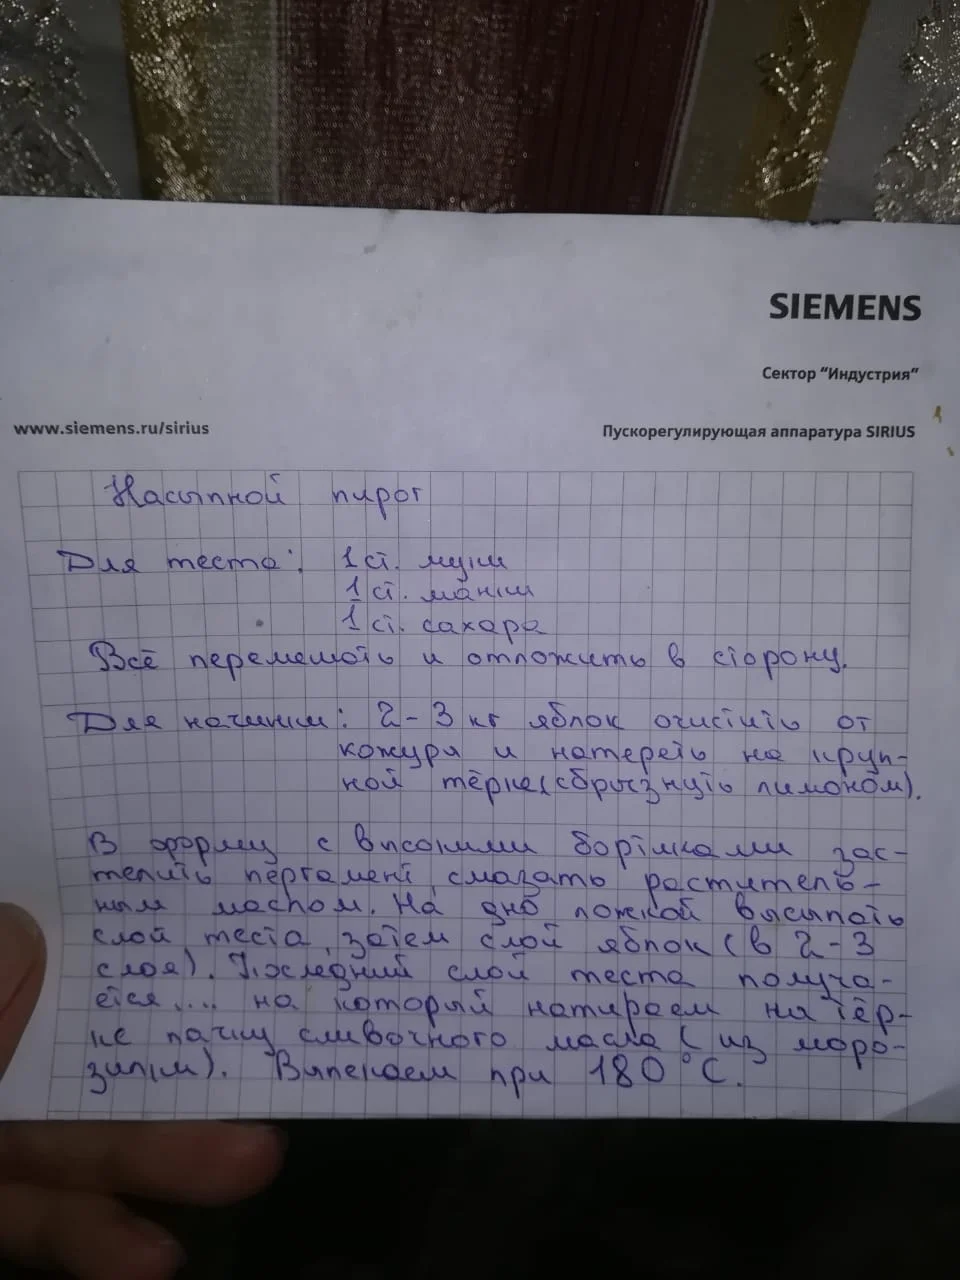 SIEMENS
Сектор “Индустрия”
www.siemens.ru/sirius
Пускорегулирующая аппаратура SIRIUS
Насыпной пирог
Для теста: 1 ст. муки
1 ст. манки
1 ст. сахара
Всё перемешать и отложить в сторону.
Для начинки: 2-3 кг яблок очистить от
кожуры и натереть на круп-
ной тёрке (сбрызнуть лимоном).
В форму с высокими бортиками зас-
телить пергамент, смазать раститель-
ным маслом. На дно ложкой высыпать
слой теста, затем слой яблок (в 2-3
слоя). Последний слой теста получа-
ется.... на который натираем на тёр-
ке пачку сливочного масла (из моро-
зилки). Выпекаем при 180 °С.